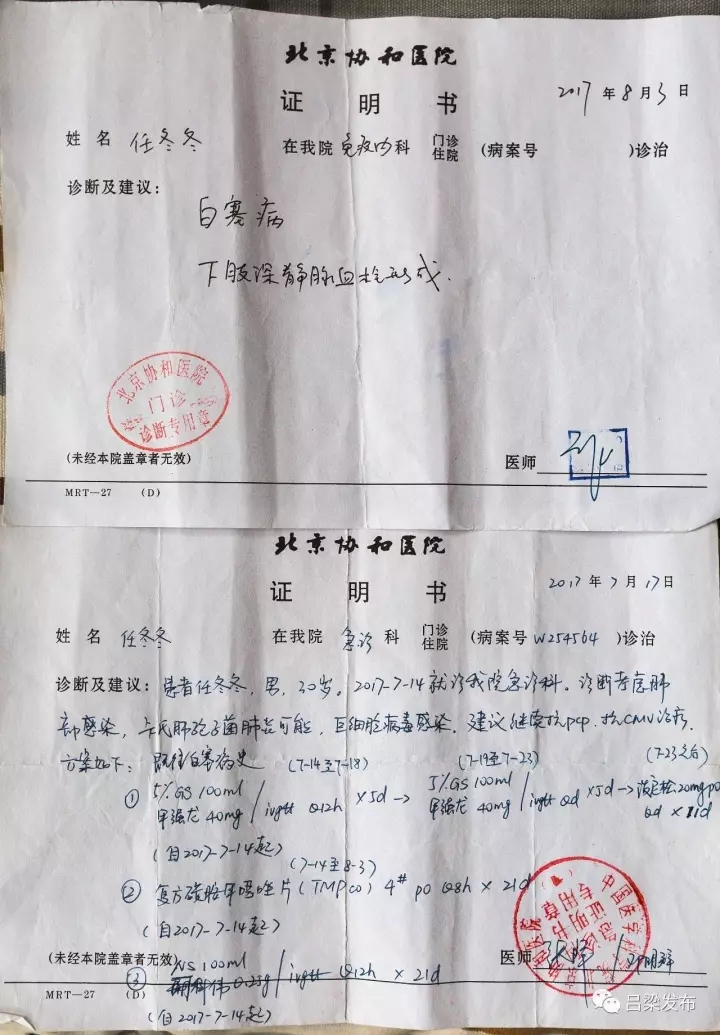 北京协和医院
证明书
2017年8月3日
姓名 任冬冬 在我院 免疫内科 门诊 住院 (病案号 )诊治
诊断及建议:
白塞病
下肢深静脉血栓形成.
北京协和医院
门诊
诊断专用章
(未经本院盖章者无效)
医师
MRT—27 (D)
北京协和医院
证明书
2017年7月17日
姓名 任冬冬 在我院 急诊科 门诊 住院 (病案号W254564)诊治
诊断及建议: 患者任冬冬,男,30岁。2017-7-14就诊我院急诊科。诊断考虑肺
部感染,卡氏肺孢子菌肺炎可能,巨细胞病毒感染。建议继续抗PCP、抗CMV治疗.
方案如下: 既往白塞病史
(7-14至7-18) (7-19至7-23) (7-23之后)
① 5%GS 100ml 甲强龙 40mg / ivgtt Q12h ×5d → 5%GS 100ml 甲强龙 40mg / ivgtt Qd ×5d → 20mg po Qd
(自2017-7-14起)
(7-14至8-3)
② 复方磺胺甲噁唑片(TMPco) 4# po Q8h × 21d
(自2017-7-14起)
(未经本院盖章者无效)
医师
③ NS 100ml 0.25g / ivgtt Q12h × 21d
MRT—27 (D)
(自2017-7-14起)
中国医学科
证明书
专用章
吕梁发布